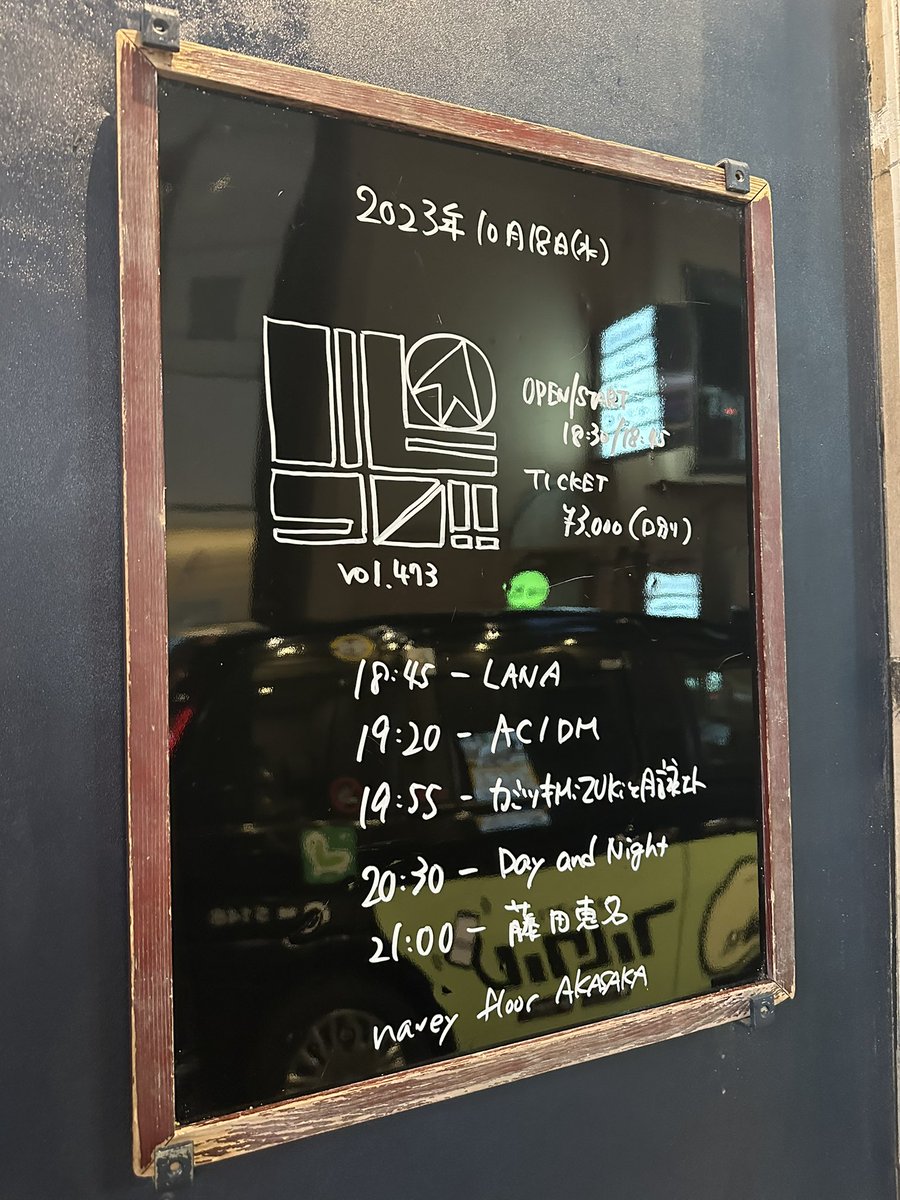 2023年10月18日(水)
OPEN/START
18:30/18:45
TICKET
¥3,000(D別)
vol.473
18:45 - LANA
19:20 - ACIDM
19:55 - カミツキMiZUKiと月読エト
20:30 - Day and Night
21:00 - 藤田恵名
navey floor AKASAKA